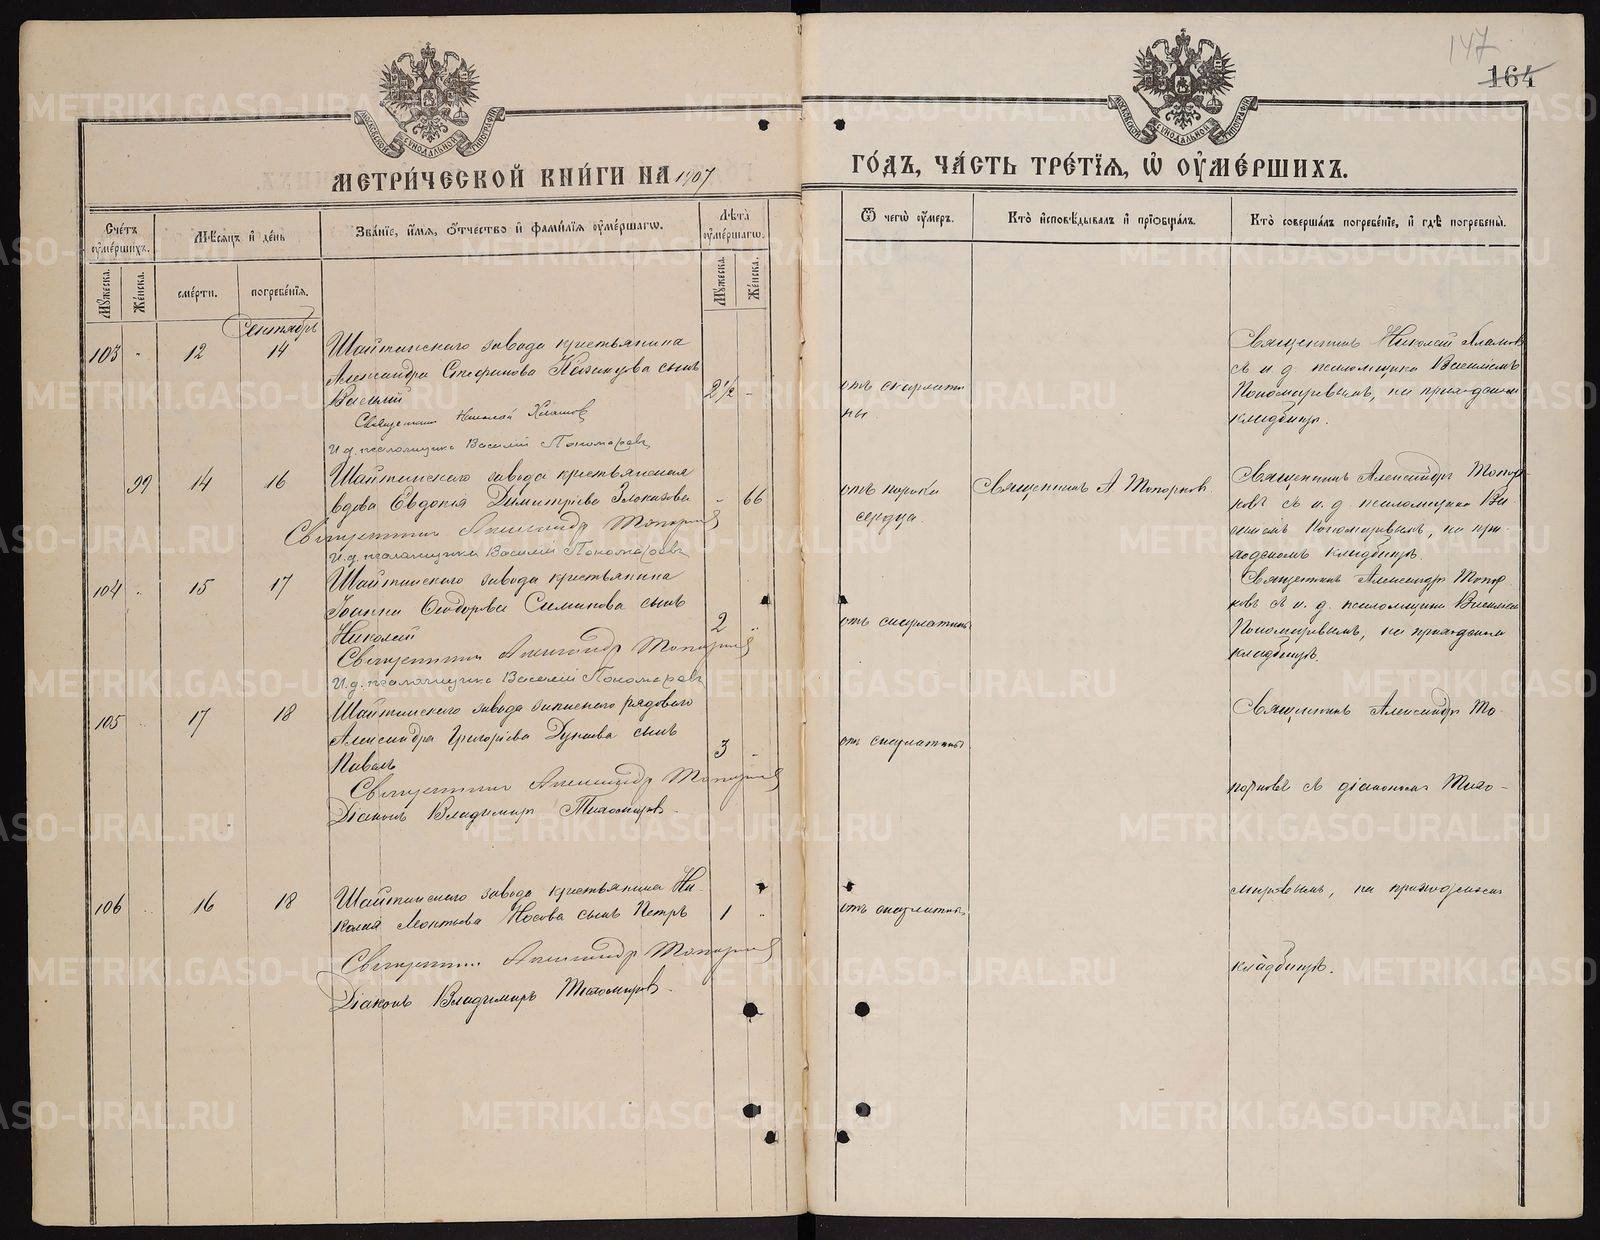 147
164
МОСКОВСКОЙ СѴНОДАЛЬНОЙ ТИПОГРАФІИ
МОСКОВСКОЙ СѴНОДАЛЬНОЙ ТИПОГРАФІИ
МЕТРИ́ЧЕСКОЙ КНИ́ГИ НА 1907 ГО́ДЪ, ЧА́СТЬ ТРЕ́ТІѦ, Ѡ ОУ҆МЕ́РШИХЪ.
Сче́тъ оу҆ме́ршихъ.
Мѣ́сѧцъ и҆ де́нь
Зва́нїе, и҆́мѧ, ѻ҆́тчество и҆ фамі́лїѧ оу҆ме́ршагѡ.
Лѣ́та оу҆ме́ршагѡ.
Ѿ чегѡ̀ оу҆́меръ.
Кто̀ и҆сповѣ́дывалъ и҆ прїѡбща́лъ.
Кто̀ соверша́лъ погребе́нїе, и҆ гдѣ̀ погребены̀.
Мꙋ́жеска.
Же́нска.
сме́рти.
погребе́нїѧ.
Мꙋ́жеска.
Же́нска.
Сентябрь
103 - 12 14 Шайтанскаго завода крестьянина
Александра Стефанова сынъ
Василий 2½ -
Священникъ Николай Хламов
И.д. псаломщика Василий Пономаревъ
отъ скарлати
ны.
Священникъ Николай Хламовъ
съ и. д. псаломщика Василіемъ
Пономаревымъ, на приходском
кладбищѣ.
99 14 16 Шайтанскаго завода крестьянская
вдова Евдокія Димитріева Злоказова - 66
Священникъ Александр Топорков
И.д. псаломщика Василій Пономаревъ
отъ порока
сердца.
Священникъ А Топорковъ
Священникъ Александръ Топор
ковъ съ и. д. псаломщика Ва
силіемъ Пономаревымъ, на при
ходскомъ кладбищѣ
104 - 15 17 Шайтанскаго завода крестьянина
Іоанна Ѳеодорова Симанова сынъ
Николай 2 -
Священникъ Александр Топорков
И.д. псаломщика Василій Пономаревъ
отъ скарлатины
Священникъ Александръ Топор
ковъ съ и. д. псаломщика Василіем
Пономаревымъ, на приходском
кладбищѣ.
105 17 18 Шайтанскаго завода запаснаго рядового
Александра Григоріева Дунаева сынъ
Павелъ 3 -
Священникъ Александр Топорков
Діаконъ Владимиръ Тихомировъ
отъ скарлатины
Священникъ Александръ То-
порковъ съ діакономъ Тихо-
мировымъ, на приходскомъ
кладбищѣ.
106 16 18 Шайтанскаго завода крестьянина Ни-
колая Леонтьева Носова сынъ Петръ 1 -
Священникъ Александр Топорков
Діаконъ Владимиръ Тихомировъ
отъ скарлатины
METRIKI.GASO-URAL.RU